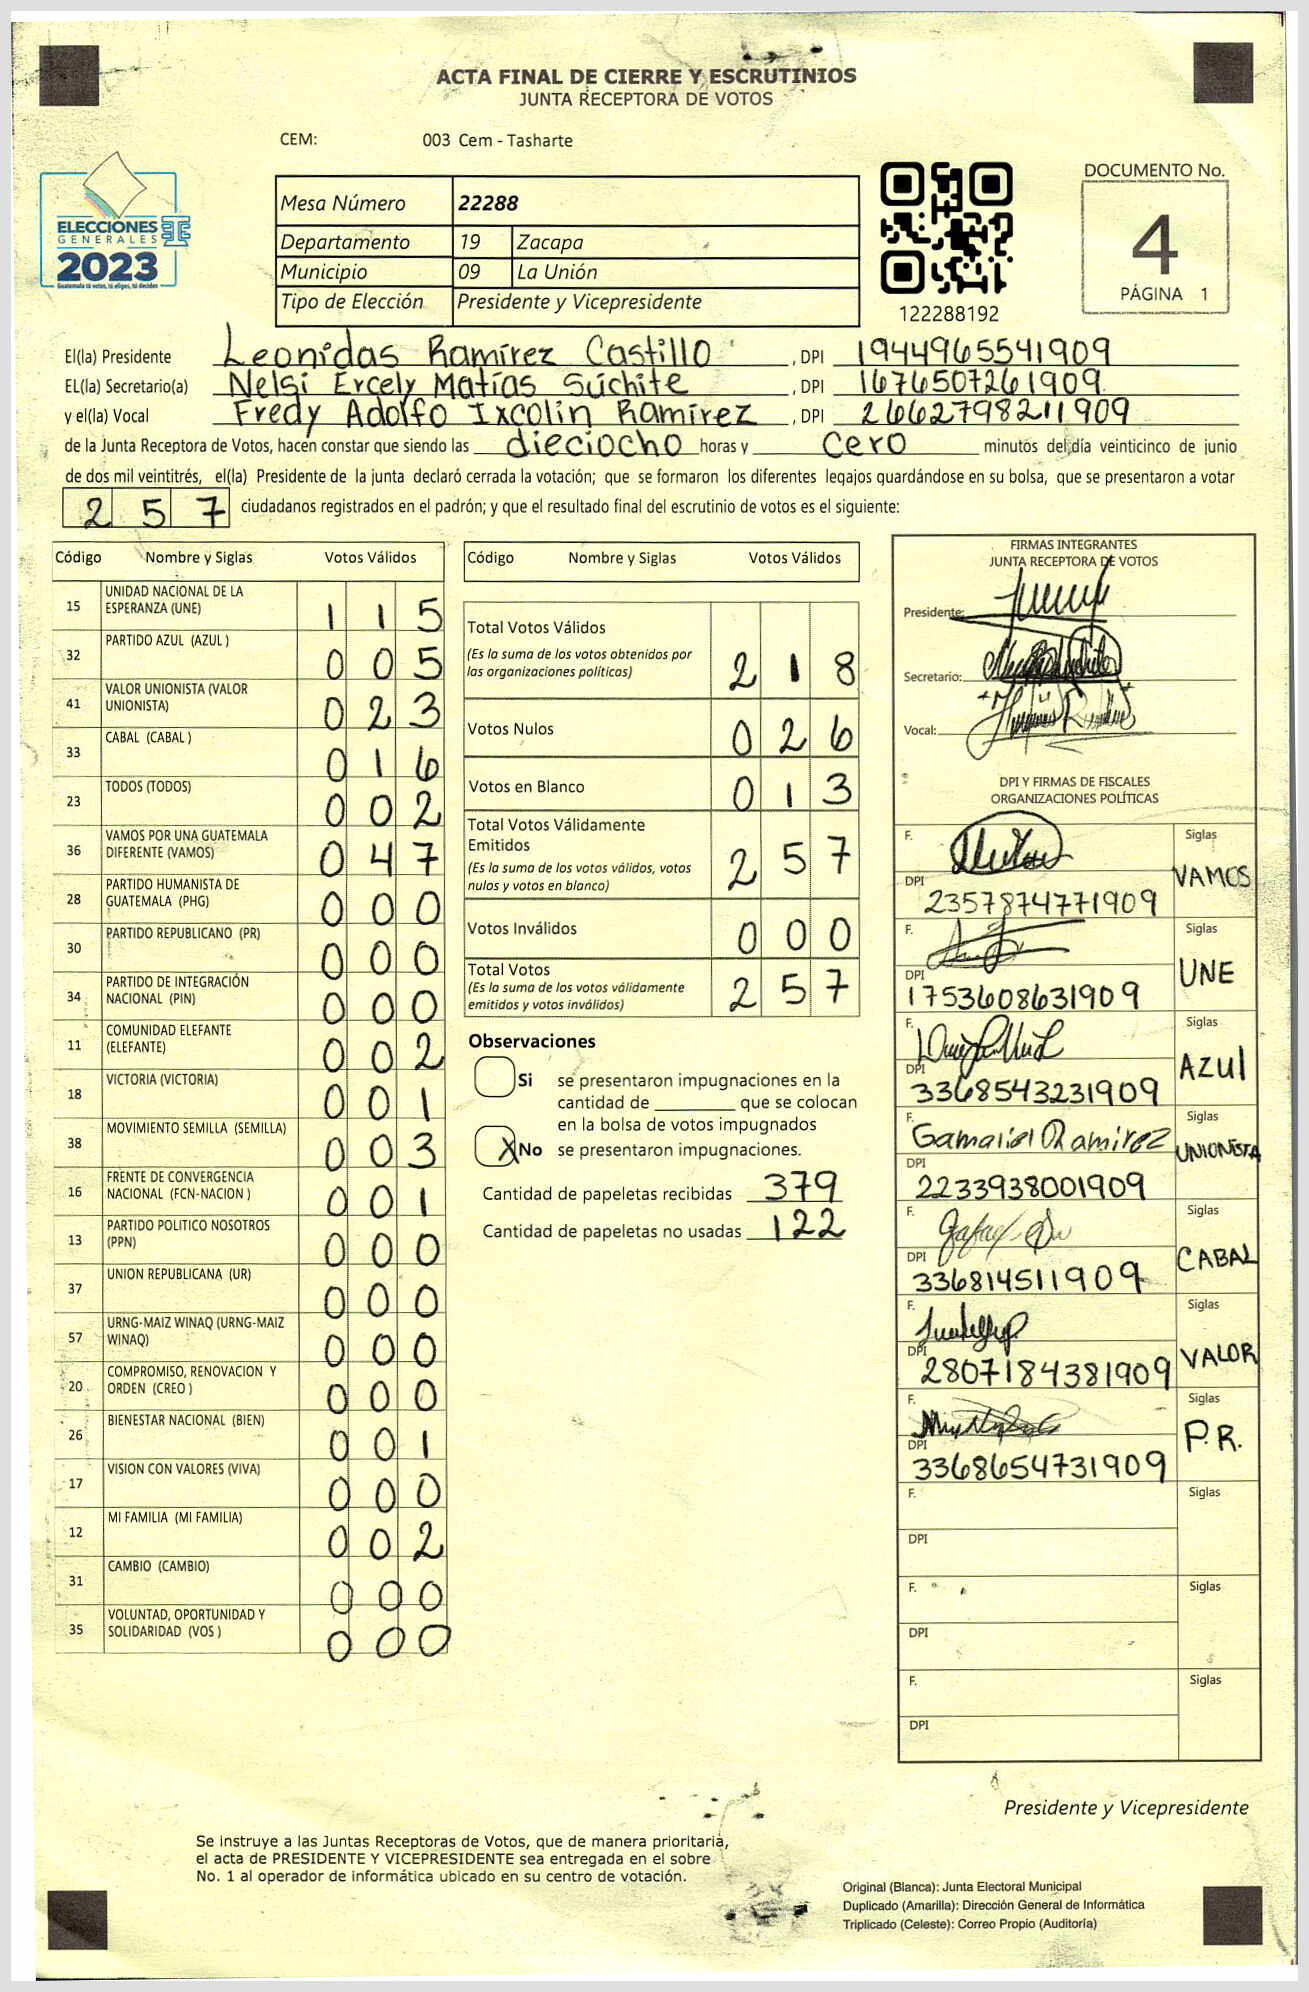 ACTA FINAL DE CIERRE Y ESCRUTINIOS
JUNTA RECEPTORA DE VOTOS
CEM: 003 Cem - Tasharte
ELECCIONES
GENERALES
2023
Guatemala tú votas, tú eliges, tú decides
Mesa Número 22288
Departamento 19 Zacapa
Municipio 09 La Unión
Tipo de Elección Presidente y Vicepresidente
122288192
DOCUMENTO No.
4
PÁGINA 1
El(la) Presidente Leonidas Ramírez Castillo , DPI 1944965541909
EL(la) Secretario(a) Nelsi Ercely Matías Súchite , DPI 1676507261909
y el(la) Vocal Fredy Adolfo Ixcolin Ramírez , DPI 2662798211909
de la Junta Receptora de Votos, hacen constar que siendo las dieciocho horas y cero minutos del día veinticinco de junio
de dos mil veintitrés, el(la) Presidente de la junta declaró cerrada la votación; que se formaron los diferentes legajos guardándose en su bolsa, que se presentaron a votar
257 ciudadanos registrados en el padrón; y que el resultado final del escrutinio de votos es el siguiente:
Código Nombre y Siglas Votos Válidos
15 UNIDAD NACIONAL DE LA
ESPERANZA (UNE) 115
32 PARTIDO AZUL (AZUL ) 005
41 VALOR UNIONISTA (VALOR
UNIONISTA) 023
33 CABAL (CABAL ) 016
23 TODOS (TODOS) 002
36 VAMOS POR UNA GUATEMALA
DIFERENTE (VAMOS) 047
28 PARTIDO HUMANISTA DE
GUATEMALA (PHG) 000
30 PARTIDO REPUBLICANO (PR) 000
34 PARTIDO DE INTEGRACIÓN
NACIONAL (PIN) 000
11 COMUNIDAD ELEFANTE
(ELEFANTE) 002
18 VICTORIA (VICTORIA) 001
38 MOVIMIENTO SEMILLA (SEMILLA) 003
16 FRENTE DE CONVERGENCIA
NACIONAL (FCN-NACION ) 001
13 PARTIDO POLITICO NOSOTROS
(PPN) 000
37 UNION REPUBLICANA (UR) 000
57 URNG-MAIZ WINAQ (URNG-MAIZ
WINAQ) 000
20 COMPROMISO, RENOVACION Y
ORDEN (CREO ) 000
26 BIENESTAR NACIONAL (BIEN) 001
17 VISION CON VALORES (VIVA) 000
12 MI FAMILIA (MI FAMILIA) 002
31 CAMBIO (CAMBIO) 000
35 VOLUNTAD, OPORTUNIDAD Y
SOLIDARIDAD (VOS ) 000
Código Nombre y Siglas Votos Válidos
Total Votos Válidos
(Es la suma de los votos obtenidos por
las organizaciones políticas) 218
Votos Nulos 026
Votos en Blanco 013
Total Votos Válidamente
Emitidos
(Es la suma de los votos válidos, votos
nulos y votos en blanco) 257
Votos Inválidos 000
Total Votos
(Es la suma de los votos válidamente
emitidos y votos inválidos) 257
Observaciones
Si se presentaron impugnaciones en la
cantidad de ________ que se colocan
en la bolsa de votos impugnados
X No se presentaron impugnaciones.
Cantidad de papeletas recibidas 379
Cantidad de papeletas no usadas 122
FIRMAS INTEGRANTES
JUNTA RECEPTORA DE VOTOS
Presidente:
Secretario:
Vocal:
DPI Y FIRMAS DE FISCALES
ORGANIZACIONES POLÍTICAS
F. Siglas
VAMOS
DPI 2357874771909
F. Siglas
UNE
DPI 1753608631909
F. Siglas
AZUl
DPI 3368543231909
F. Gamaliel Ramirez Siglas
UNIONISTA
DPI 2233938001909
F. Siglas
CABAL
DPI 336814511909
F. Siglas
VALOR
DPI 2807184381909
F. Siglas
P.R.
DPI 3368654731909
F. Siglas
DPI
F. Siglas
DPI
F. Siglas
DPI
Presidente y Vicepresidente
Se instruye a las Juntas Receptoras de Votos, que de manera prioritaria,
el acta de PRESIDENTE Y VICEPRESIDENTE sea entregada en el sobre
No. 1 al operador de informática ubicado en su centro de votación.
Original (Blanca): Junta Electoral Municipal
Duplicado (Amarilla): Dirección General de Informática
Triplicado (Celeste): Correo Propio (Auditoría)